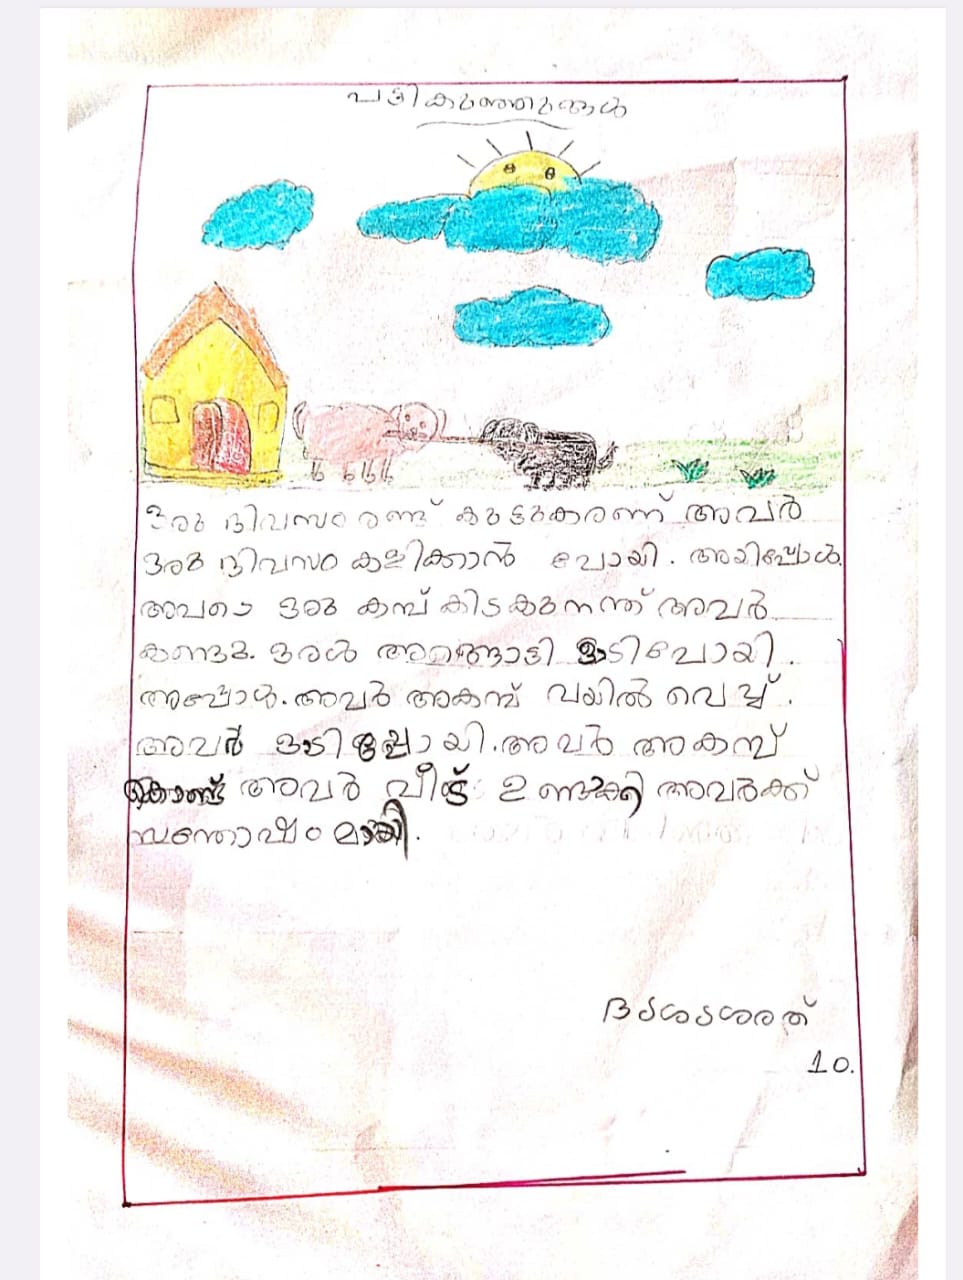 പട്ടികുഞ്ഞുങ്ങൾ
ഒരു ദിവസം രണ്ട് കുട്ടുകരണ് അവർ
ഒരു ദിവസം കളിക്കാൻ പോയി. അപ്പോൾ
അവടെ ഒരു കമ്പ് കിടകുന്നത് അവർ
കണ്ടു. ഒരാൾ അങ്ങോട്ടി ഓടിപോയി.
അപ്പോൾ. അവർ അകമ്പ് വയിൽ വെച്ച്.
അവർ ഓടിപ്പോയി. അവർ അകമ്പ്
കൊണ്ട് അവർ വീട് ഉണ്ടക്കി അവർക്ക്
സന്തോഷം മായി.
10.